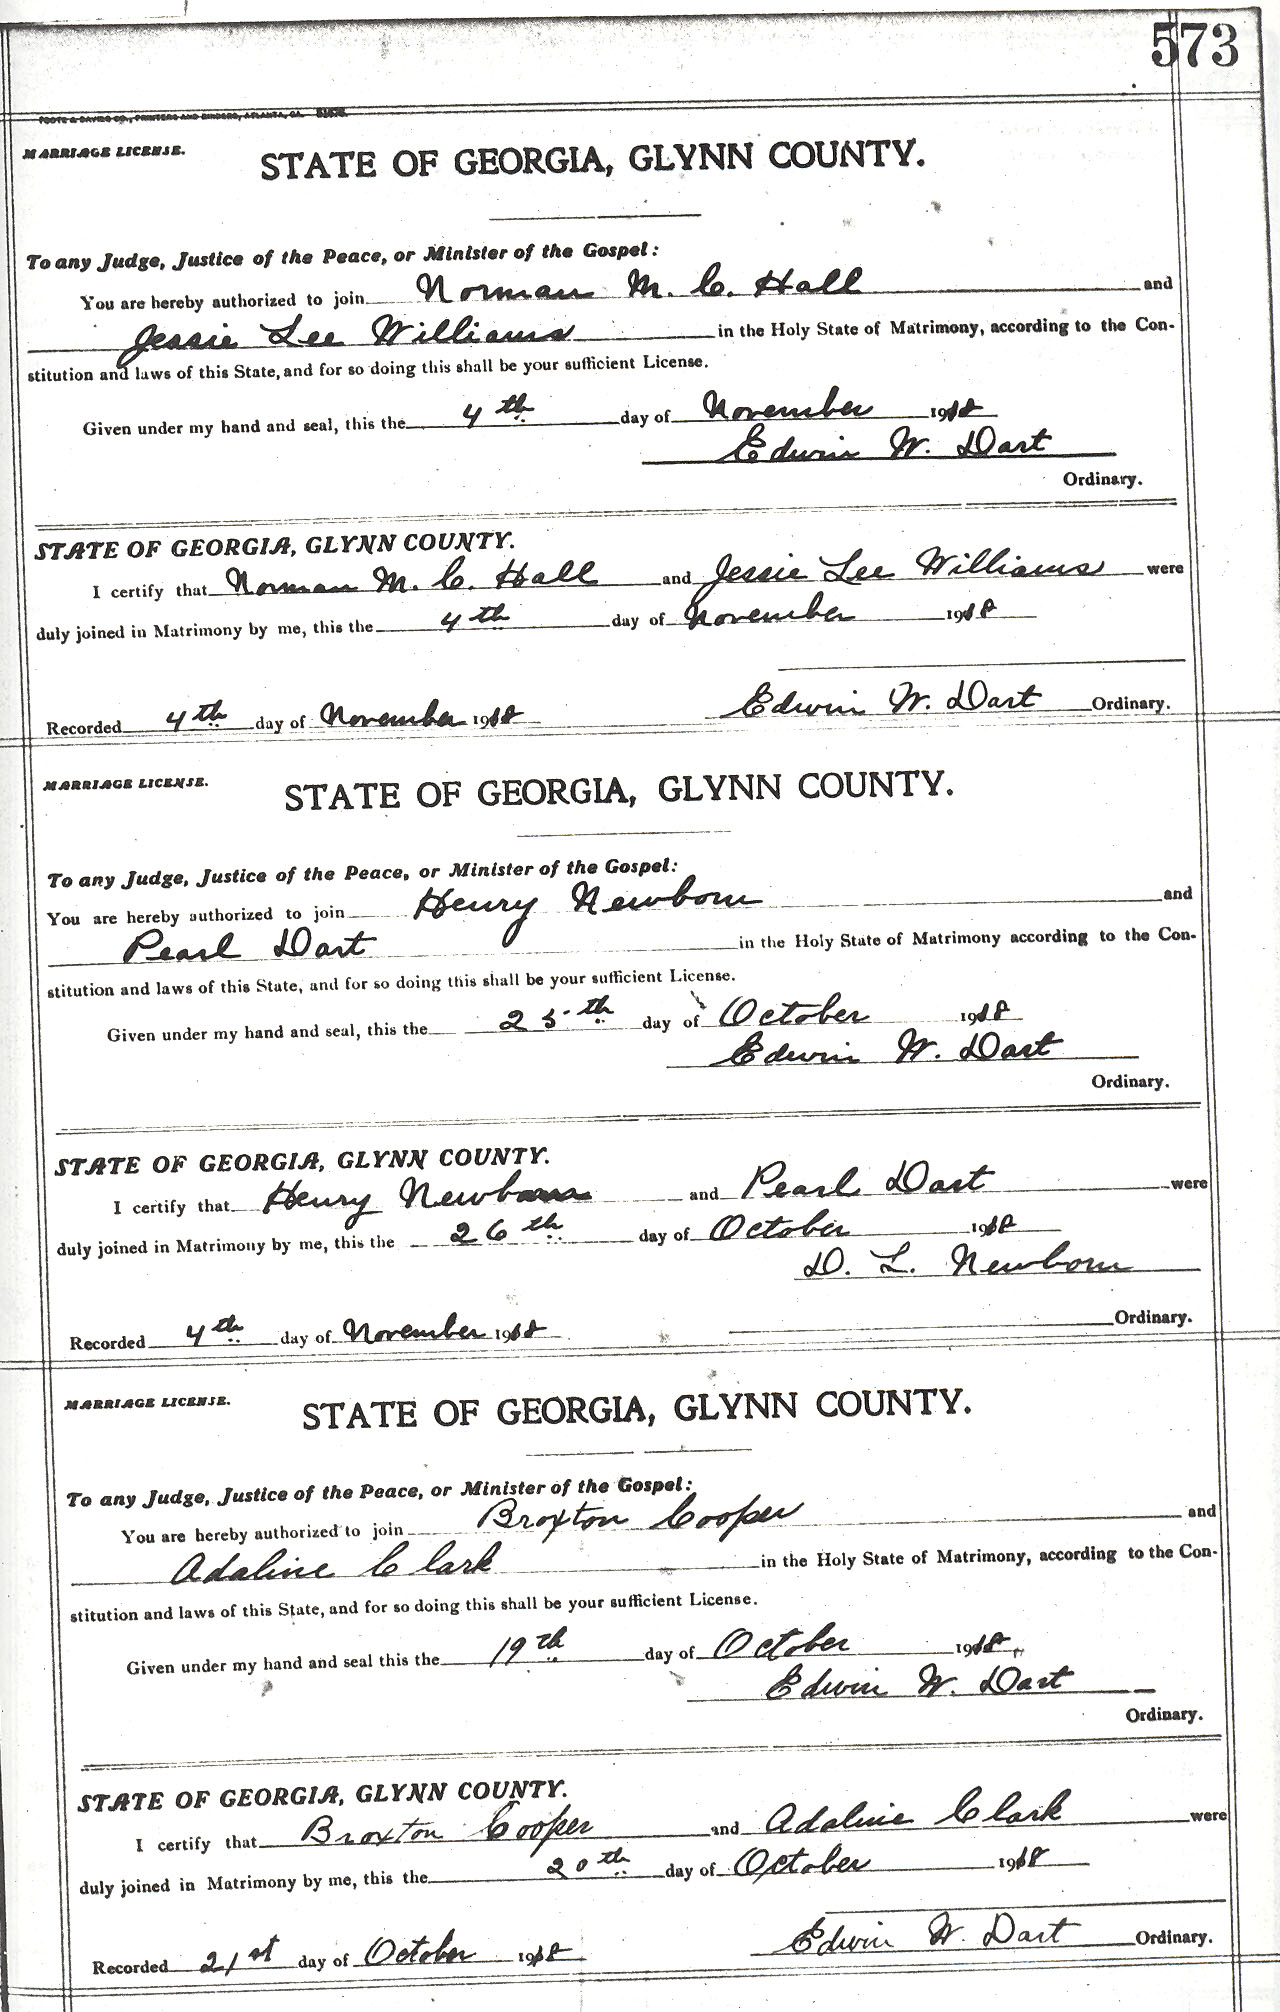 573
FOOTE & DAVIES CO., PRINTERS AND BINDERS, ATLANTA, GA.
MARRIAGE LICENSE.
STATE OF GEORGIA, GLYNN COUNTY.
To any Judge, Justice of the Peace, or Minister of the Gospel:
You are hereby authorized to join Norman M. C. Hall and
Jessie Lee Williams in the Holy State of Matrimony, according to the Con-
stitution and laws of this State, and for so doing this shall be your sufficient License.
Given under my hand and seal, this the 4th day of November 1918
Edwin W. Dart
Ordinary.
STATE OF GEORGIA, GLYNN COUNTY.
I certify that Norman M. C. Hall and Jessie Lee Williams were
duly joined in Matrimony by me, this the 4th day of November 1918
Recorded 4th day of November 1918 Edwin W. Dart Ordinary.
MARRIAGE LICENSE.
STATE OF GEORGIA, GLYNN COUNTY.
To any Judge, Justice of the Peace, or Minister of the Gospel:
You are hereby authorized to join Henry Newborn and
Pearl Dart in the Holy State of Matrimony according to the Con-
stitution and laws of this State, and for so doing this shall be your sufficient License.
Given under my hand and seal, this the 25th day of October 1918
Edwin W. Dart
Ordinary.
STATE OF GEORGIA, GLYNN COUNTY.
I certify that Henry Newborn and Pearl Dart were
duly joined in Matrimony by me, this the 26th day of October 1918
D. L. Newborn
Recorded 4th day of November 1918 Ordinary.
MARRIAGE LICENSE.
STATE OF GEORGIA, GLYNN COUNTY.
To any Judge, Justice of the Peace, or Minister of the Gospel:
You are hereby authorized to join Broxton Cooper and
Adaline Clark in the Holy State of Matrimony, according to the Con-
stitution and laws of this State, and for so doing this shall be your sufficient License.
Given under my hand and seal this the 19th day of October 1918
Edwin W. Dart
Ordinary.
STATE OF GEORGIA, GLYNN COUNTY.
I certify that Broxton Cooper and Adaline Clark were
duly joined in Matrimony by me, this the 20th day of October 1918
Recorded 21st day of October 1918 Edwin W. Dart Ordinary.